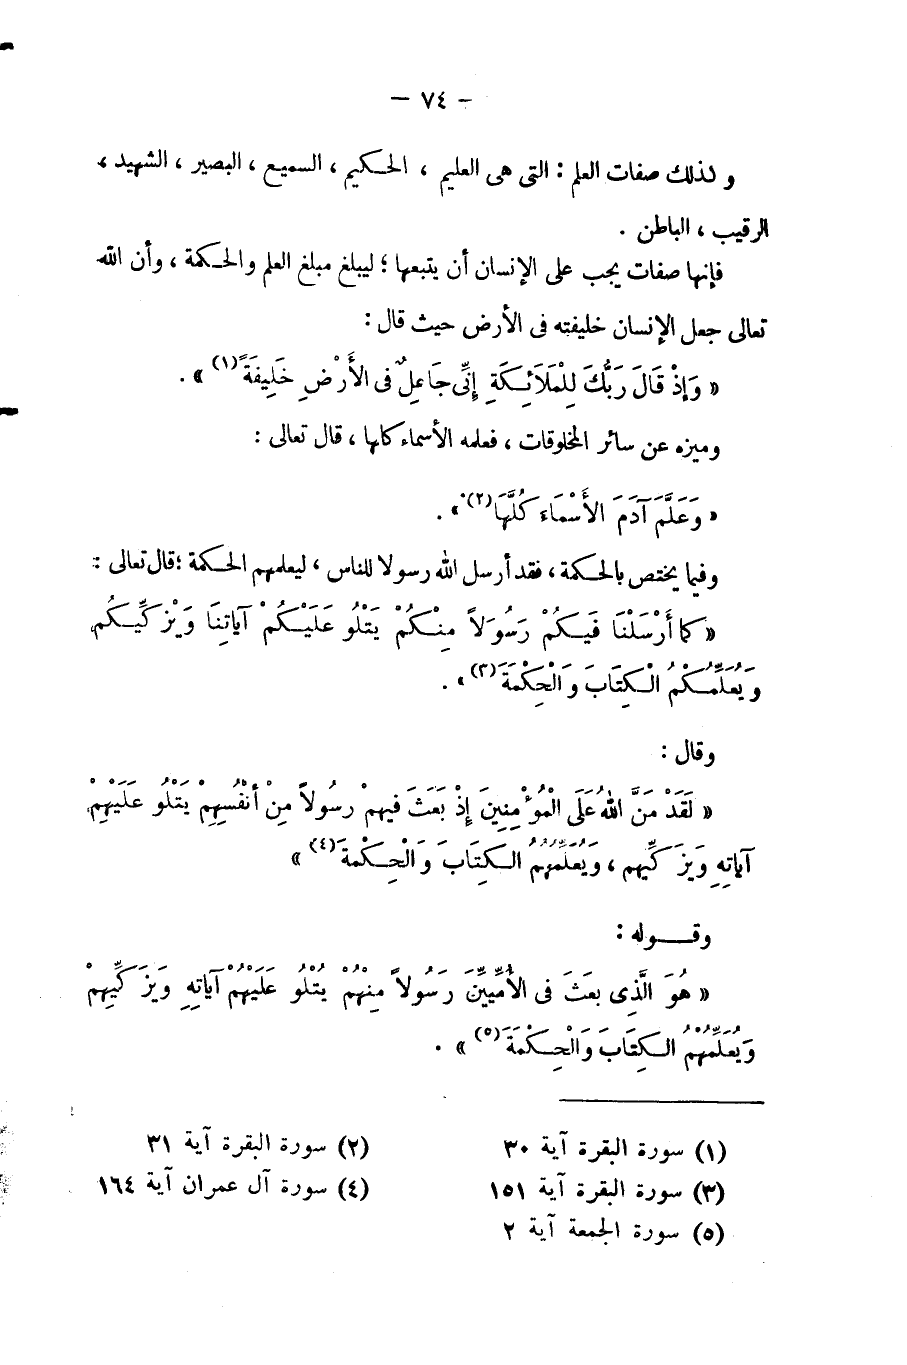 - ٧٤ -
و لذلك صفات العلم : التى هى العليم ، الحكيم ، السميع ، البصير ، الشهيد ،
الرقيب ، الباطن .
فإنها صفات يجب على الإنسان أن يتبعها ؛ ليبلغ مبلغ العلم والحكمة ، وأن الله
تعالى جعل الإنسان خليفته فى الأرض حيث قال :
« وَإِذْ قَالَ رَبُّكَ لِلْمَلَائِكَةِ إِنِّى جَاعِلٌ فى الأَرْضِ خَلِيفَةً (١) » .
وميزه عن سائر المخلوقات ، فعلمه الأسماء كلها ، قال تعالى :
« وَعَلَّمَ آدَمَ الأَسْمَاءَ كُلَّهَا (٢) » .
وفيما يختص بالحكمة ، فقد أرسل الله رسولا للناس ، ليعلمهم الحكمة ؛ قال تعالى :
« كما أَرْسَلْنَا فَيكُمْ رَسُوَلاً مِنْكُمْ يَتْلُو عَلَيْكُمْ آيَاتِنَا وَيُزَكِّيكُم
وَيُعَلِّمُكُمُ الْكِتَابَ وَالْحِكْمَةَ (٣) » .
وقال :
« لَقَدْ مَنَّ اللهُ عَلَى الْمُؤْمِنِينَ إِذْ بَعَثَ فيهمْ رسُولاً مِنْ أَنْفُسِهِمْ يَتْلُو عَلَيْهِمْ
آيَاتِهِ وَيُزَكِّيهم ، وَيُعَلِّمُهُمُ الكِتَابَ وَالْحِكْمةَ (٤) »
وقوله :
« هُوَ الَّذِى بعَثَ فى الأُمِّيِّينَ رَسُولاً مِنْهُمْ يَتْلُو عَلَيْهُمْ آيَاتِهِ وَيُزَكِّيهِمْ
وَيُعَلِّمُهُمُ الكِتَابَ وَالْحِكْمَةَ (٥) » .
(١) سورة البقرة آية ٣٠
(٢) سورة البقرة آية ٣١
(٣) سورة البقرة آية ١٥١
(٤) سورة آل عمران آية ١٦٤
(٥) سورة الجمعة آية ٢